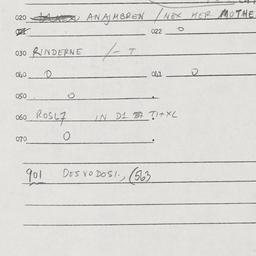 020 ANAJMBREN / NEX HER MOTHE
022 0
030 RINDERNE /- T
040 0 041 0
050 0
060 ROSL7 IN D1 TI+XL
070 0
901 DESVODOSI., (563